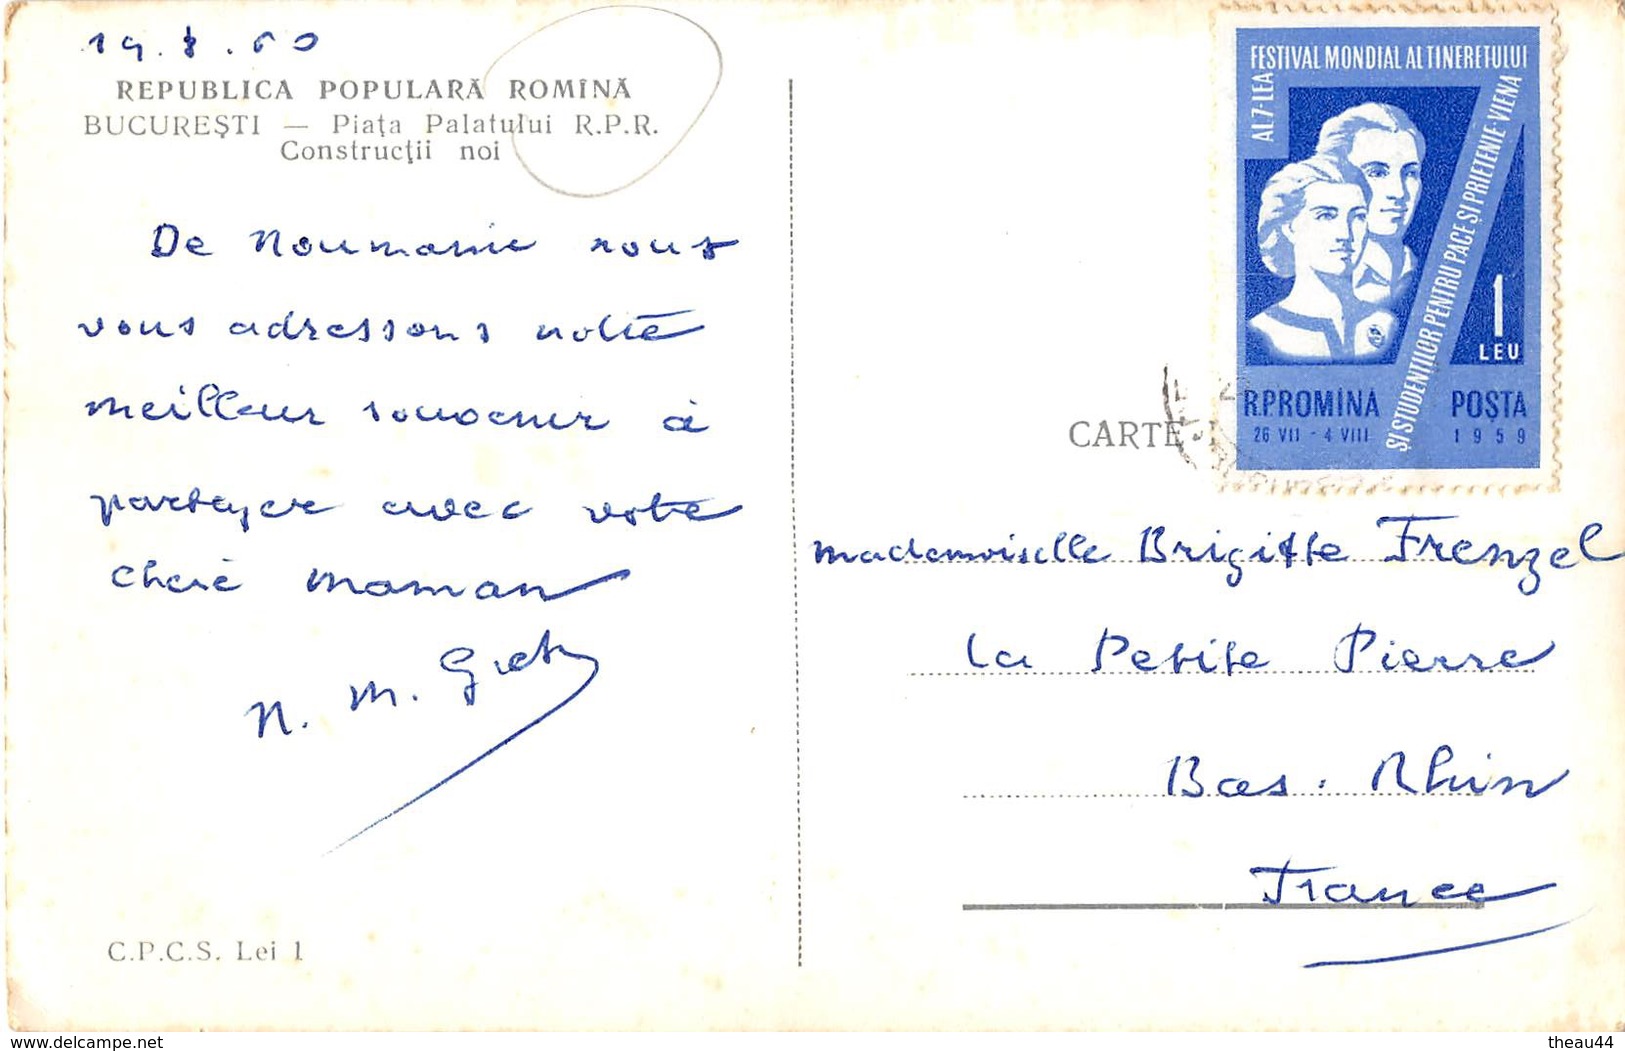 19.8.60
REPUBLICA POPULARĂ ROMÎNĂ
BUCUREŞTI — Piaţa Palatului R.P.R.
Construcţii noi
De Roumanie nous
vous adressons notre
meilleur souvenir à
partager avec votre
chère maman
C.P.C.S. Lei 1
FESTIVAL MONDIAL AL TINERETULUI
AL 7-LEA
ŞI STUDENŢILOR PENTRU PACE ŞI PRIETENIE-VIENA
1
LEU
R.P.ROMÎNĂ POŞTA
26 VII - 4 VIII 1959
CARTE
Mademoiselle Brigitte Frenzel
La Petite Pierre
Bas. Rhin
France
delcampe.net
theau44